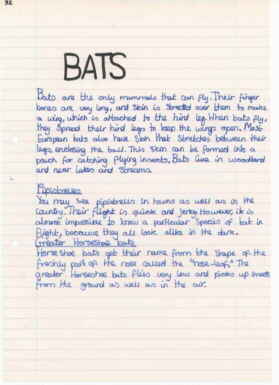 BATS
Bats are the only mammals that can fly. Their finger
bones are very long, and skin is stretched over them to make
a wing, which is attached to the hind leg. When bats fly,
they spread their hind legs to keep the wings open. Most
European bats also have skin that stretches between their
legs, enclosing the tail. This skin can be formed into a
pouch for catching flying insects. Bats live in woodland
and near lakes and streams.
Pipistrelles
You may see pipistrelles in towns as well as in the
country. Their flight is quick and jerky. However, it is
almost impossible to know a particular species of bat in
flight, because they all look alike in the dark.
Greater Horseshoe bats
Horseshoe bats get their name from the shape of the
fleshy part of the nose called the "nose-leaf". The
greater Horseshoe bats flies very low and picks up insects
from the ground as well as in the air.